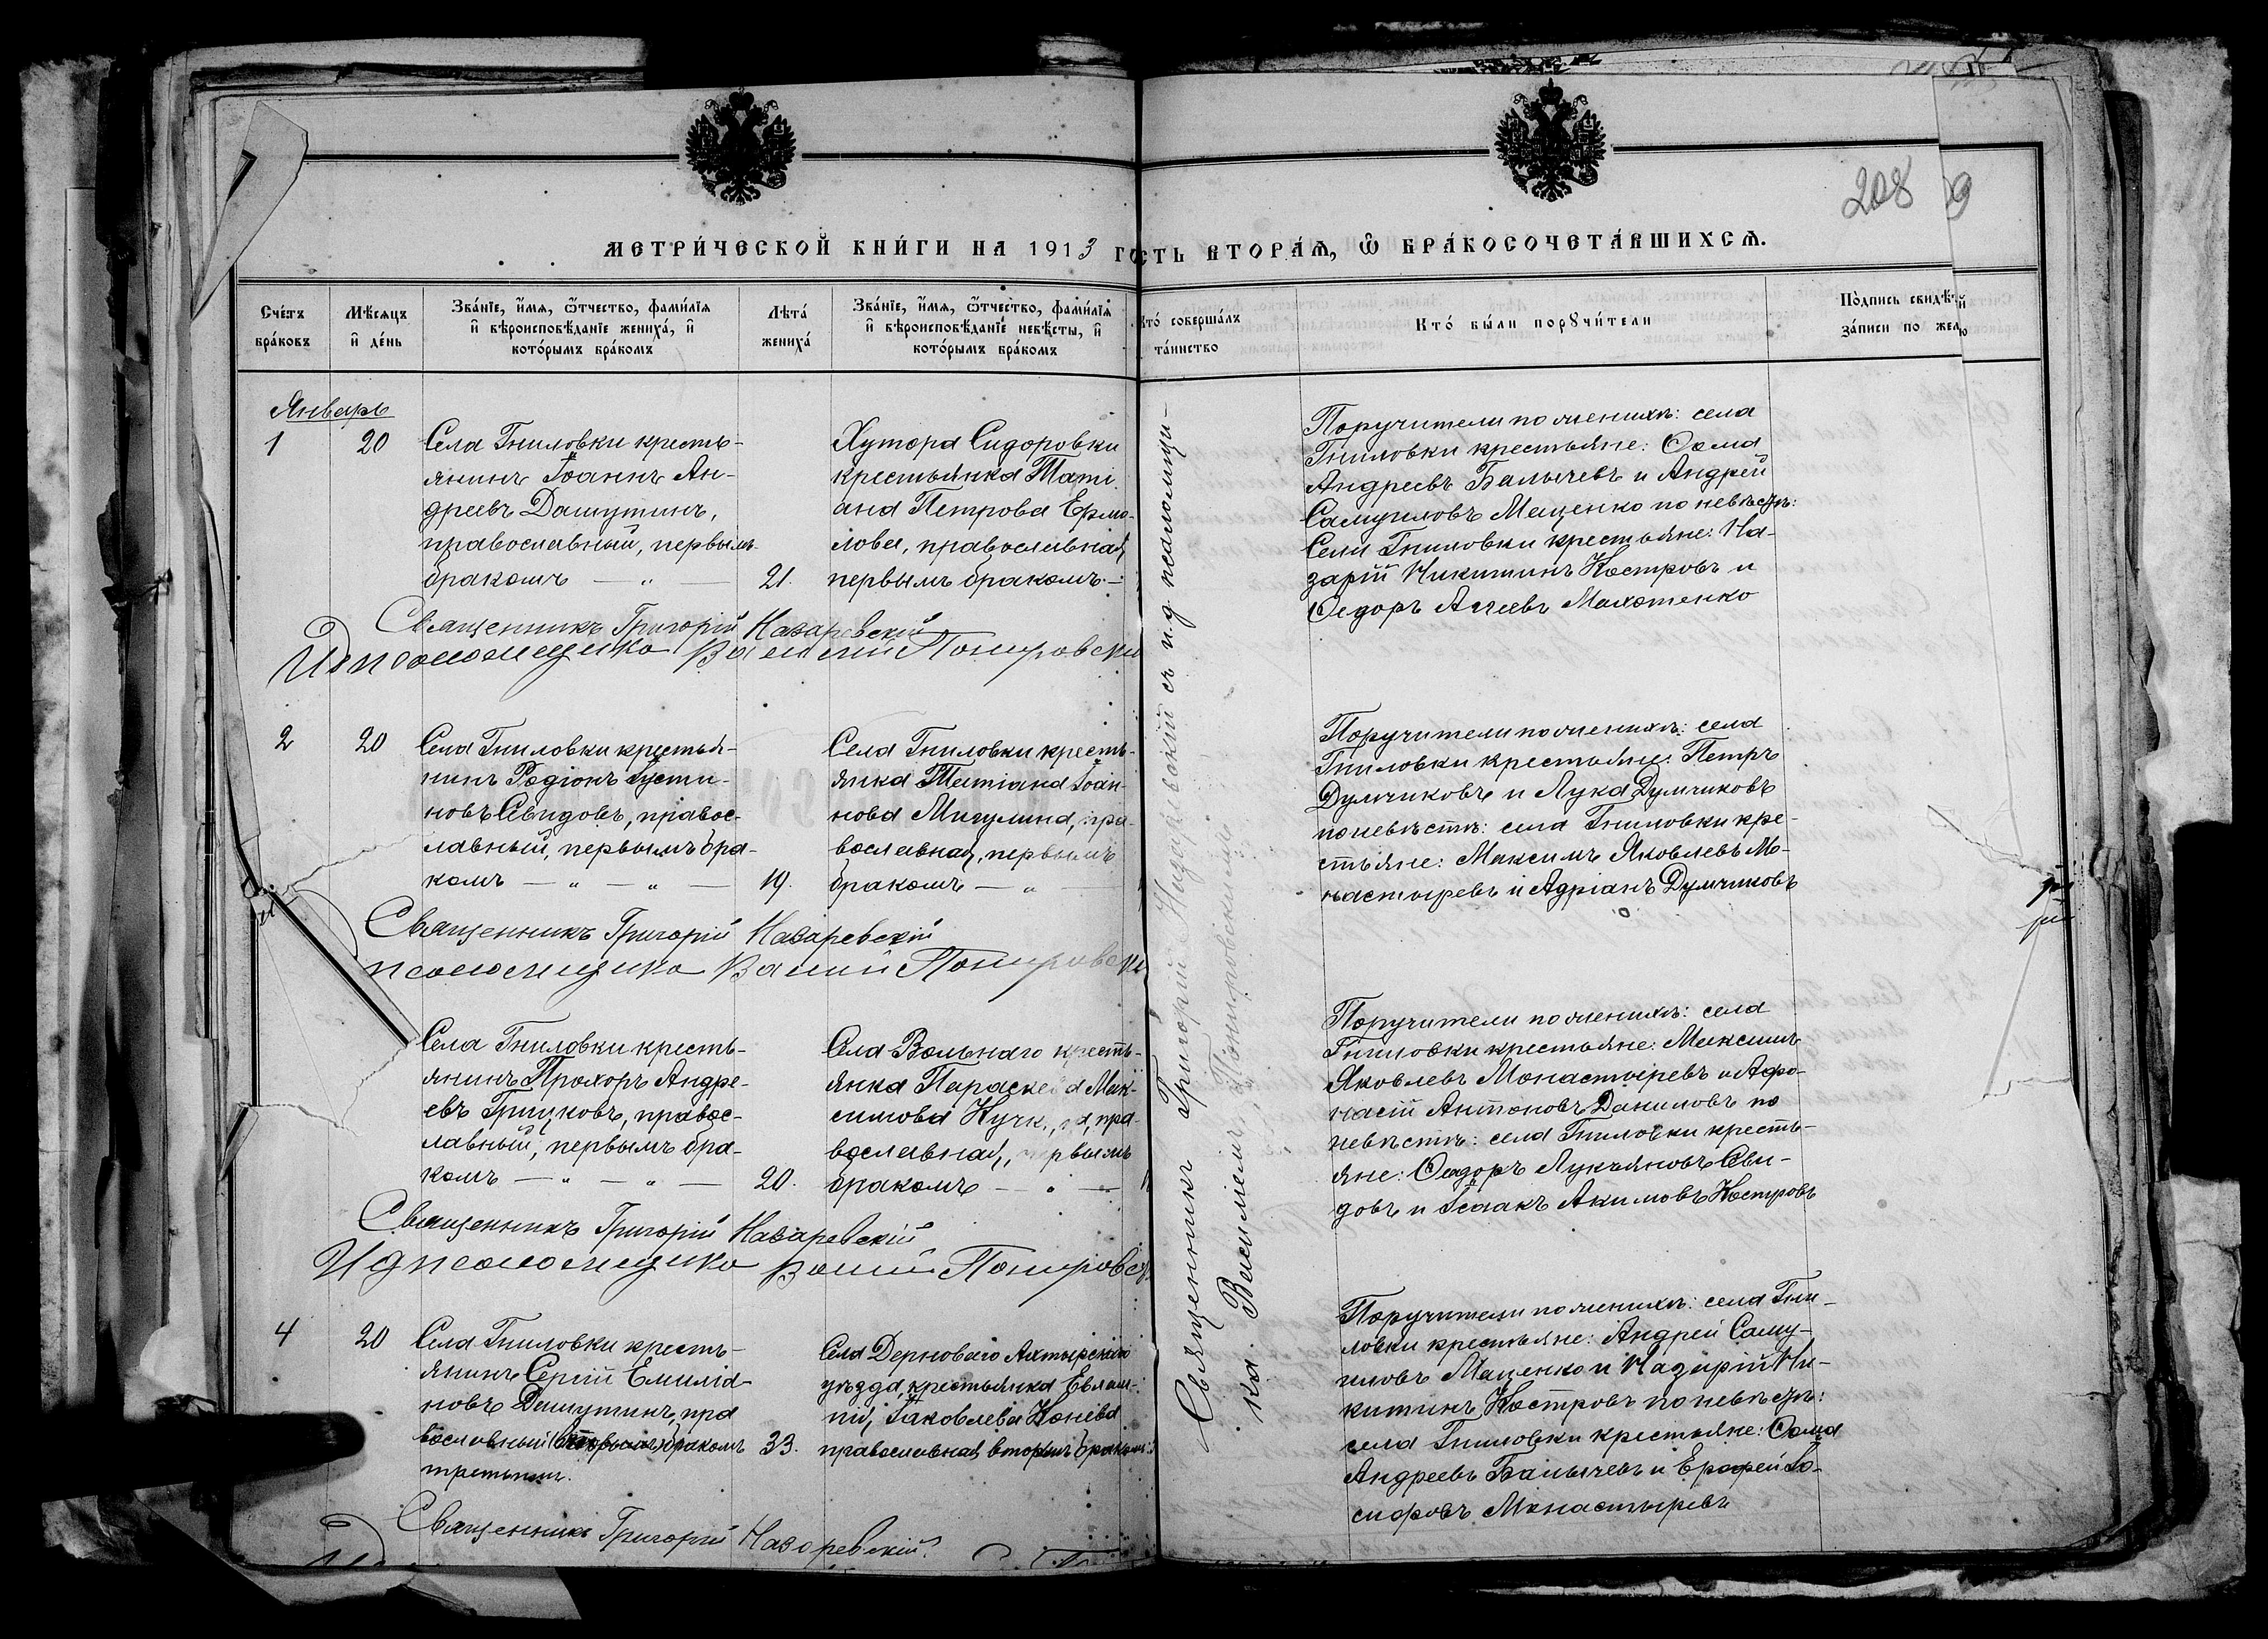 208
9
МЕТРИ́ЧЕСКОЙ КНИ́ГИ НА 1913 ГО
СТЬ ВТОРА́Ѧ, Ѿ БРА́КОСОЧЕТА́ВШИХСѦ.
Сче́тъ
бра́ковъ
Мѣ́сѧцъ
и҆ де́нь
Зва́нїе, и҆́мѧ, ѻ҆́тчество, фами́лїѧ
и҆ вѣроисповѣ́данїе жениха́, и҆
кото́рымъ бра́комъ
Лѣта́
жениха́
Зва́нїе, и҆́мѧ, ѻ҆́тчество, фами́лїѧ
и҆ вѣроисповѣ́данїе невѣ́сты, и҆
кото́рымъ бра́комъ
кто́ соверша́лъ
та́инство
Кто́ бы́ли порꙋчи́тели
По́дпись свидѣ́
за́писи по жел
Январь
1
20
Села Гниловки кресть-
янинъ Іоаннъ Ан-
дреевъ Дашутинъ,
православный, первымъ
бракомъ — „
21.
Хутора Сидоровки
крестьянка Таті-
ана Петрова Ермо-
лова, православная,
первымъ бракомъ. —
Поручители по женихѣ: села
Гниловки крестьяне: Ѳома
Андреевъ Балычевъ и Андрей
Самуиловъ Маценко по невѣстѣ:
Села Гниловки крестьяне: На-
зарій Никитинъ Костровъ и
Ѳедоръ Агеевъ Махотенко
Священникъ Григорій Назаревскій
Ид псаломщика Василий Понировски
2
20
Села Гниловки крестья-
нинъ Родіонъ Іусти-
новъ Свидовъ, правос-
лавный, первымъ бра-
комъ — „ — „ —
19.
Села Гниловки кресть-
янка Татіана Іоан-
нова Мигулина, пра-
вославная, первымъ
бракомъ — „ —
Поручители по женихѣ: села
Гниловки крестьяне: Петръ
Думчиковъ и Лука Думчиковъ
по невѣстѣ: села Гниловки кре-
стьяне: Максимъ Яковлевъ Мо-
настыревъ и Адріанъ Думчиковъ
Священникъ Григорій Назаревскій
псаломщика Василий Понировски
Села Гниловки кресть-
янинъ Прохоръ Андре-
евъ Грицковъ, правос-
лавный, первымъ бра-
комъ — „ — „ —
20.
Села Вольнаго кресть-
янка Параскева Мак-
симова, пра-
вославная, первымъ
бракомъ — „ —
Поручители по женихѣ: села
Гниловки крестьяне: Максимъ
Яковлевъ Монастыревъ и Афо-
насій Антоновъ Даниловъ по
невѣстѣ: села Гниловки кресть-
яне: Ѳедоръ Лукьяновъ Сви-
довъ и Исаакъ Акимовъ Костровъ
Священникъ Григорій Назаревскій
Ид псаломщика Василий Понировск
4
20
Села Гниловки кресть-
янинъ Сергій Емиліа-
новъ Дашутинъ, пра
вославный (вторымъ) бракомъ
третьимъ.
33.
Села Дерноваго Ахтырскаго
уѣзда крестьянка Евлам-
пія Іаковлева Конева
православная вторымъ бракомъ
Поручители по женихѣ: села Гни-
ловки крестьяне: Андрей Саму-
иловъ Маценко и Назарій Ни-
китинъ Костровъ по невѣстѣ:
села Гниловки крестьяне: Ѳома
Андреевъ Балычевъ и Ерофей Іо-
сифовъ Монастыревъ
Священникъ Григорій Назаревскій
Священникъ Григорій Назаревскій съ и. д. псаломщи-
ка Василіемъ Понировскимъ.